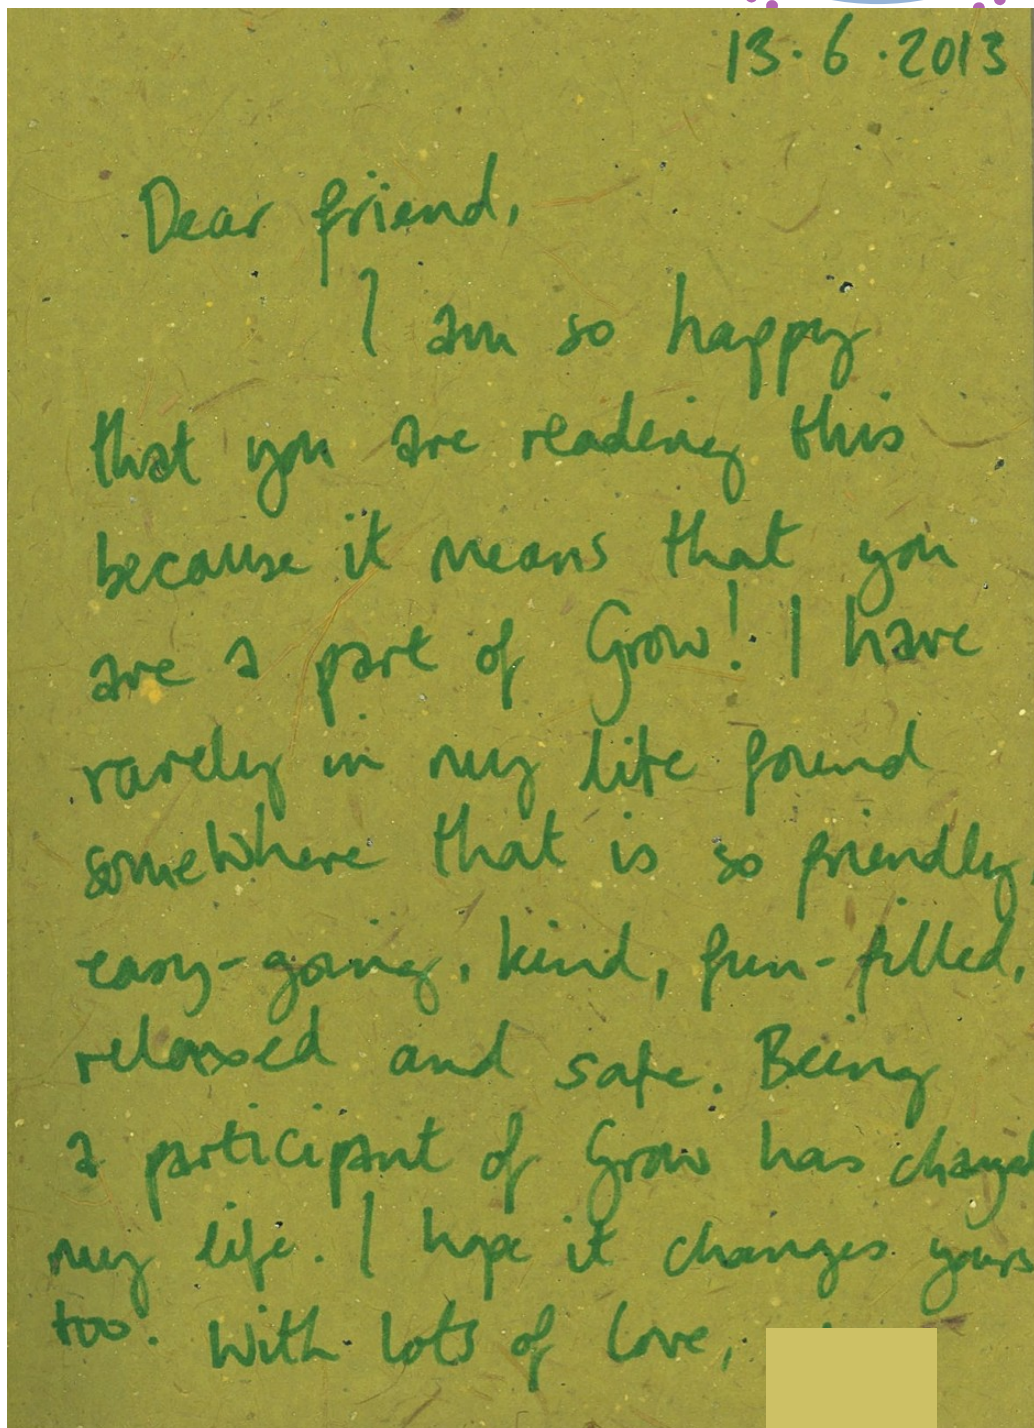 13.6.2013
Dear friend,
I am so happy
that you are reading this
because it means that you
are a part of Grow! I have
rarely in my life found
somewhere that is so friendly,
easy-going, kind, fun-filled,
relaxed and safe. Being
a participant of Grow has changed
my life. I hope it changes yours
too. With lots of love,